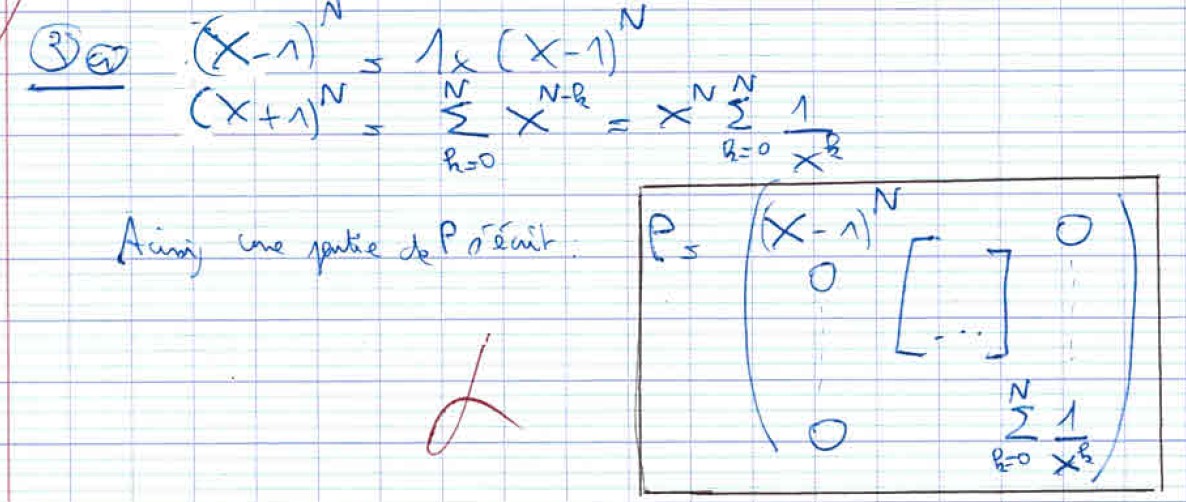 3 a) (X-1)^N = 1 × (X-1)^N
(X+1)^N = \sum_{k=0}^{N} X^{N-k} = X^N \sum_{k=0}^{N} \frac{1}{X^k}
Ainsi une partie de P s'écrit : P = \begin{pmatrix} (X-1)^N & & 0 \\ 0 & [\dots] & \vdots \\ \vdots & & \vdots \\ 0 & & \sum_{k=0}^{N} \frac{1}{X^k} \end{pmatrix}